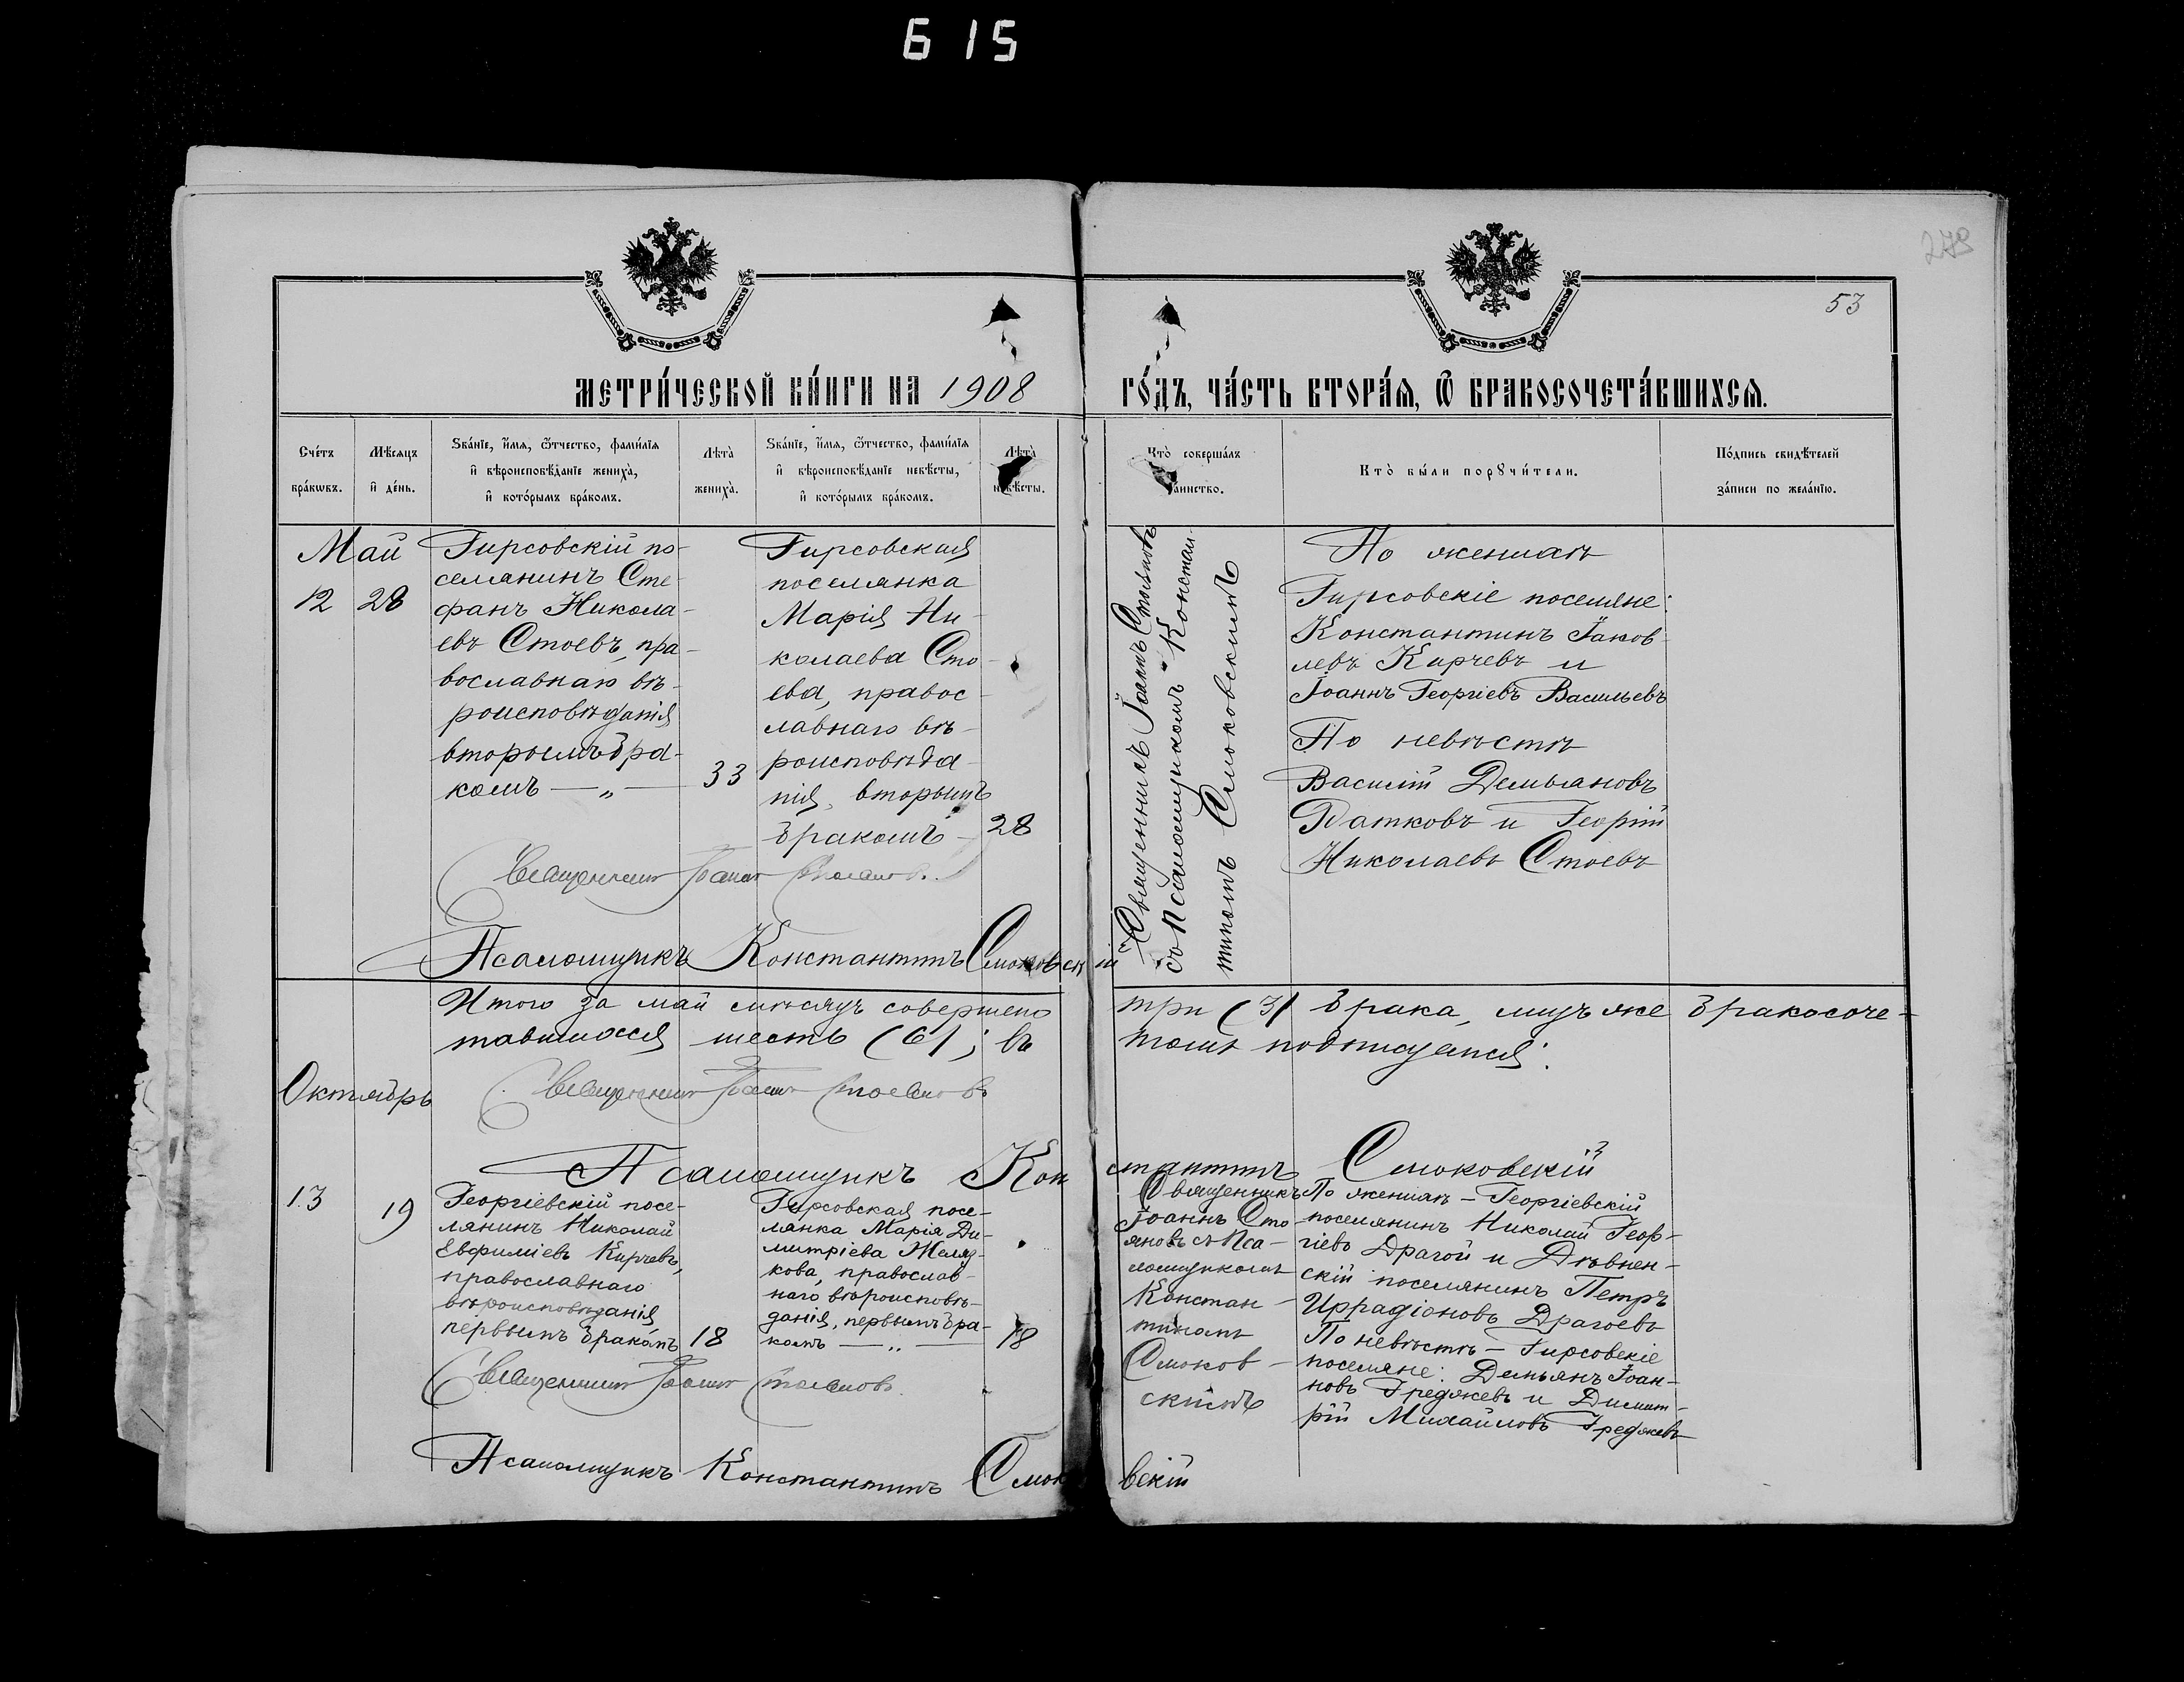 615
278
53
МЕТРИ́ЧЕСКОЙ КНИ́ГИ НА 1908 ГО́ДЪ, ЧА́СТЬ ВТОРА́Ѧ, Ѿ БРАКОСОЧЕТА́ВШИХСѦ.
Сче́тъ бра́кѡвъ.
Мѣ́сяцъ и҆ де́нь.
Ѕва́нїе, и҆́мѧ, ѻ҆́тчество, фами́лїѧ
и҆ вѣроисповѣ́данїе жениха̀,
и҆ кото́рымъ бра́комъ.
Лѣта̀
жениха̀.
Ѕва́нїе, и҆́мѧ, ѻ҆́тчество, фами́лїѧ
и҆ вѣроисповѣ́данїе невѣ́сты,
и҆ кото́рымъ бра́комъ.
Лѣта̀
невѣ́сты.
Кто̀ соверша́лъ
таинство.
Кто̀ бы́ли порꙋчи́тели.
По́дпись свидѣ́телей
за́писи по жела́нїю.
Май
12 28
Гирсовскій по-
селянинъ Сте-
фанъ Никола-
евъ Стоевъ, пра-
вославнаго вѣ-
роисповѣданія
вторымъ бра-
комъ — „ — 33
Гирсовская
поселянка
Марія Ни-
колаева Сто-
ева, правос-
лавнаго вѣ-
роисповѣда-
нія, вторымъ
бракомъ — 28
Священникъ Іоаннъ Стояновъ
съ Псаломщикомъ Констан-
тиномъ Смоковскимъ
По женихѣ
Гирсовскіе поселяне:
Константинъ Іаков-
левъ Кирчевъ и
Іоаннъ Георгіевъ Васильевъ
По невѣстѣ
Василій Демьяновъ
Ратковъ и Георгій
Николаевъ Стоевъ
Священникъ Іоаннъ Стояновъ.
Псаломщикъ Константинъ Смоковскій
Итого за май мѣсяцъ совершено три (3) брака, лицъ же бракосоче-
тавшихся шесть (6); въ томъ подписуемся:
Октябрь
Священникъ Іоаннъ Стояновъ
Псаломщикъ Константинъ Смоковскій
13 19
Георгіевскій посе-
лянинъ Николай
Евфиміевъ Кирчевъ,
православнаго
вѣроисповѣданія,
первымъ бракомъ 18
Гирсовская посе-
лянка Марія Ди-
митріева Желяз-
кова, православ-
наго вѣроисповѣ-
данія, первымъ бра-
комъ — „ — 18
Священникъ
Іоаннъ Сто-
яновъ съ Пса-
ломщикомъ
Констан-
тиномъ
Смоков-
скимъ
По женихѣ — Георгіевскій
поселянинъ Николай Геор-
гіевъ Драгой и Дѣвнен-
скій поселянинъ Петръ
Иррадіоновъ Драгоевъ
По невѣстѣ — Гирсовскіе
поселяне: Демьянъ Іоан-
новъ Греджевъ и Димит-
рій Михайловъ Греджевъ
Священникъ Іоаннъ Стояновъ.
Псаломщикъ Константинъ Смоковскій